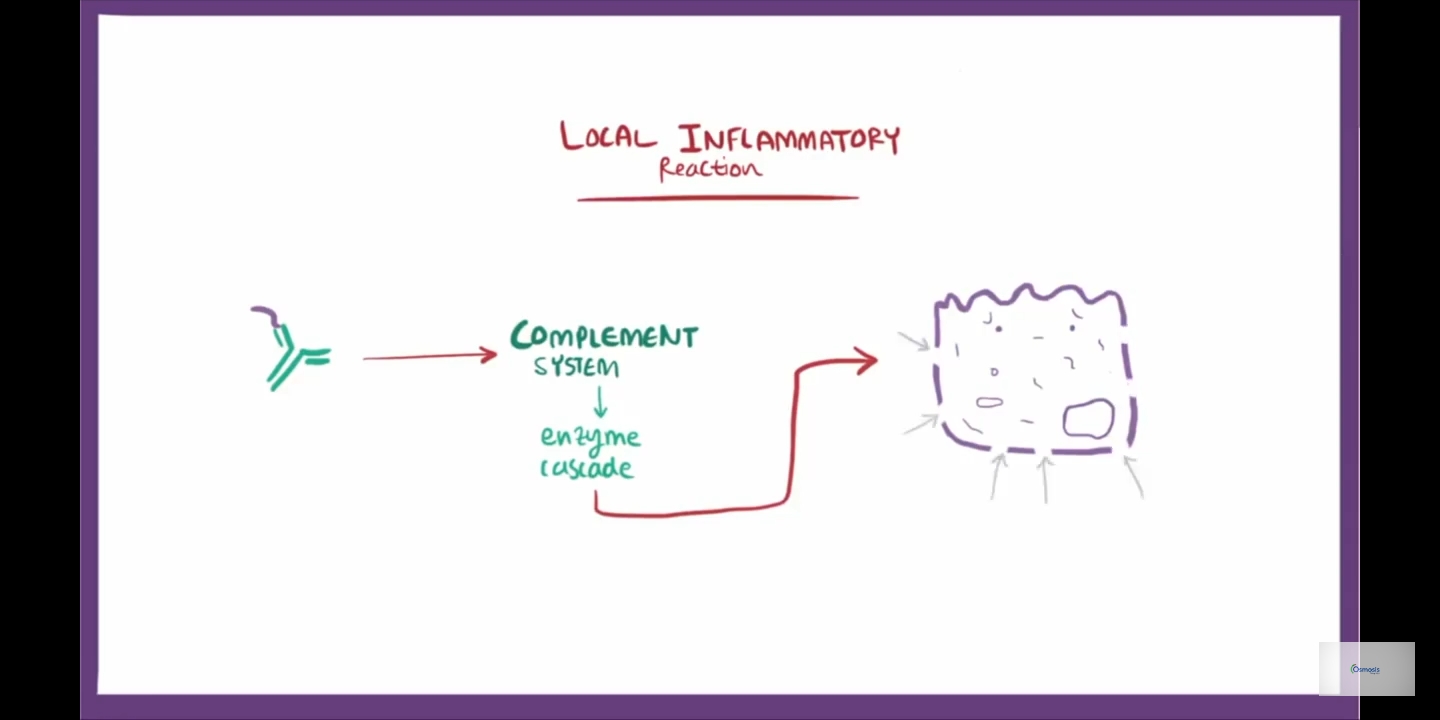 LOCAL INFLAMMATORY
Reaction
COMPLEMENT
SYSTEM
enzyme
cascade
Osmosis